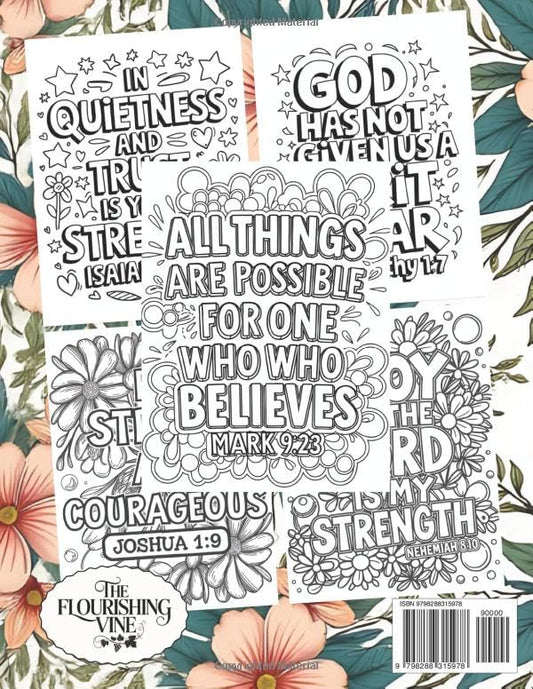 Copyrighted Material
IN
QUIETNESS
AND
TRUST
IS YO
STRE
ISAIA
GOD
HAS NOT
GIVEN US A
IT
AR
thy 1:7
ALL THINGS
ARE POSSIBLE
FOR ONE
WHO WHO
BELIEVES
MARK 9:23
ST
A
COURAGEOUS
JOSHUA 1:9
OY
THE
RD
IS MY
STRENGTH
NEHEMIAH 8:10
THE
FLOURISHING
VINE
ISBN 9798288315978
90000
9 798288 315978
Copyrighted Material